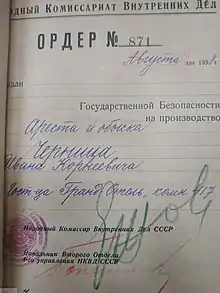 РОДНЫЙ КОМИССАРИАТ ВНУТРЕННИХ ДЕЛ
ОРДЕР № 871
Августа
дан
Государственной Безопасности
на производство
Ареста и обыска
Черница
Ивана Корнеевича
Гост-ца Гранд-Отель, комн 417
Народный Комиссар Внутренних Дел СССР
Начальник Второго Отдела
управления НКВД СССР